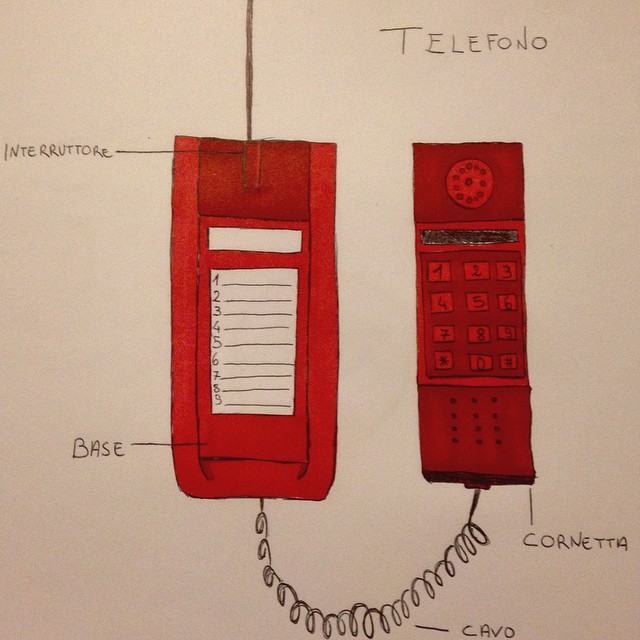 TELEFONO
INTERRUTTORE
1
2
3
4
5
6
7
8
9
1 2 3
4 5 6
7 8 9
* 0 #
BASE
CORNETTA
CAVO